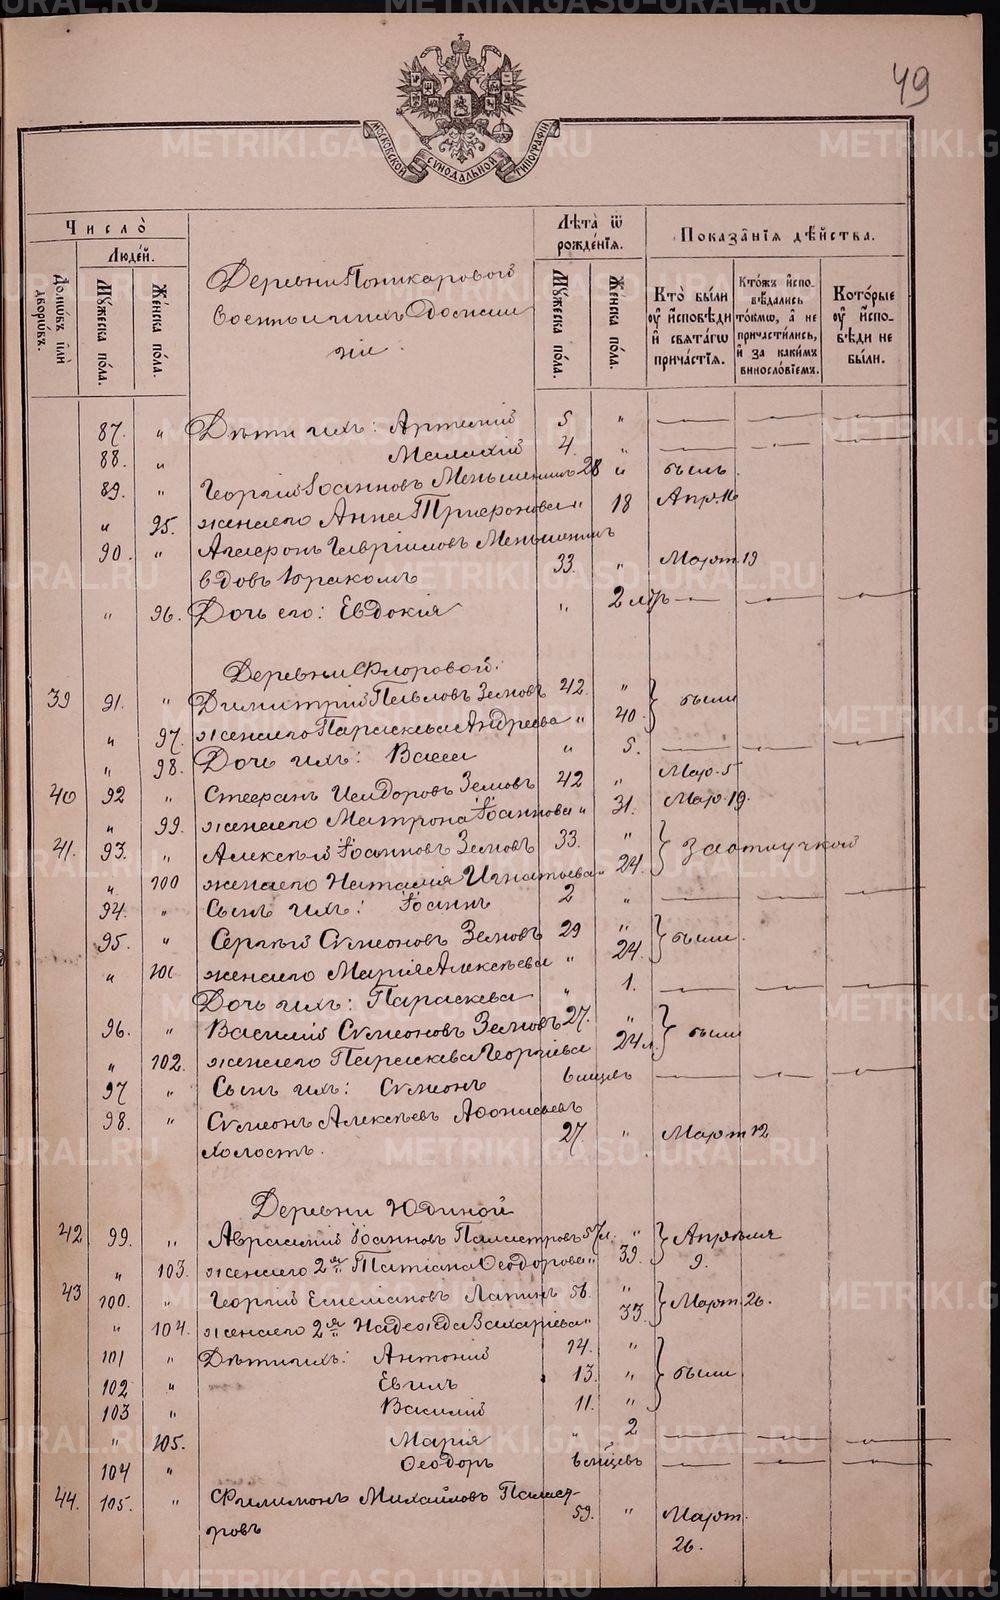 49
МОСКОВСКОЙ СѴНОДАЛЬНОЙ ТИПОГРАФІИ
Число̀
Людей.
Домѡвъ илѝ дворѡвъ.
Мꙋжеска пола.
Женска пола.
Деревни Поникаровой
военные и ихъ домаш
ніе.
Лѣта̀ ѿ рожденїѧ.
Мꙋжеска пола.
Женска пола.
Показанїѧ дѣйства.
Кто̀ были ᲂу҆ и҆сповѣди и҆ свѧтагѡ причастїѧ.
Ктожъ и҆сповѣдались токмѡ, а҆ не причастились, и҆ за какимъ винословїемъ.
Которые ᲂу҆ и҆сповѣди не были.
87. " Дѣти ихъ: Артемий 5 "
88. " Малахій 4. "
89. " Георгій Іоанновъ Меньшенинъ 28 " былъ.
" 95. жена его Анна Триѳонова " 18 Апр. 16
90. " Агаѳонъ Гавріиловъ Меньшенинъ
вдовъ 1 бракомъ 33. " Март. 19
" 96. Дочь его: Евдокія " 2 м
Деревни Флоровой.
39 91. " Димитрій Павловъ Земовъ 42. " были
" 97. жена его Параскева Андреева " 40.
" 98. Дочь ихъ: Васса " 5.
40 92 " Стефанъ Исидоровъ Земовъ 42 " Мар. 5
" 99. жена его Матрона Іоаннова " 31. Мар. 19.
41. 93. " Алексѣй Іоанновъ Земовъ 33. " За отлучкой
" 100 жена его Наталія Игнатьева " 24.
94. " Сынъ ихъ: Іоаннъ 2 "
95. " Сергѣй Сѵмеоновъ Земовъ 29 " были.
" 101 жена его Марія Алексѣева " 24.
Дочь ихъ: Параскева " 1.
96. " Василій Сѵмеоновъ Земовъ 27. " были
" 102. жена его Параскева Георгіева 24 л.
97 " Сынъ ихъ: Сѵмеонъ 6 мцевъ
98. " Сѵмеонъ Алексѣевъ Аѳонасьевъ
холостъ. 27. " Март 12
Деревни Юдиной
42 99. " Авраамій Іоанновъ Паластровъ 57 л. " Апрѣля
" 103. жена его 2я Татіана Ѳеодорова " 39. 9.
43 100. " Георгій Емеліановъ Лапинъ 56. " Март. 26.
" 104. жена его 2я Надежда Захаріева " 33.
101 " Дѣти ихъ: Антоній 14. " были
102 " Евгилъ 13. "
103 " Василій 11. "
" 105. Марія " 2
104 " Ѳеодоръ 6 мцевъ
44. 105. " Филимонъ Михайловъ Паласт-
ровъ 59. " Март.
26.
METRIKI.GASO-URAL.RU